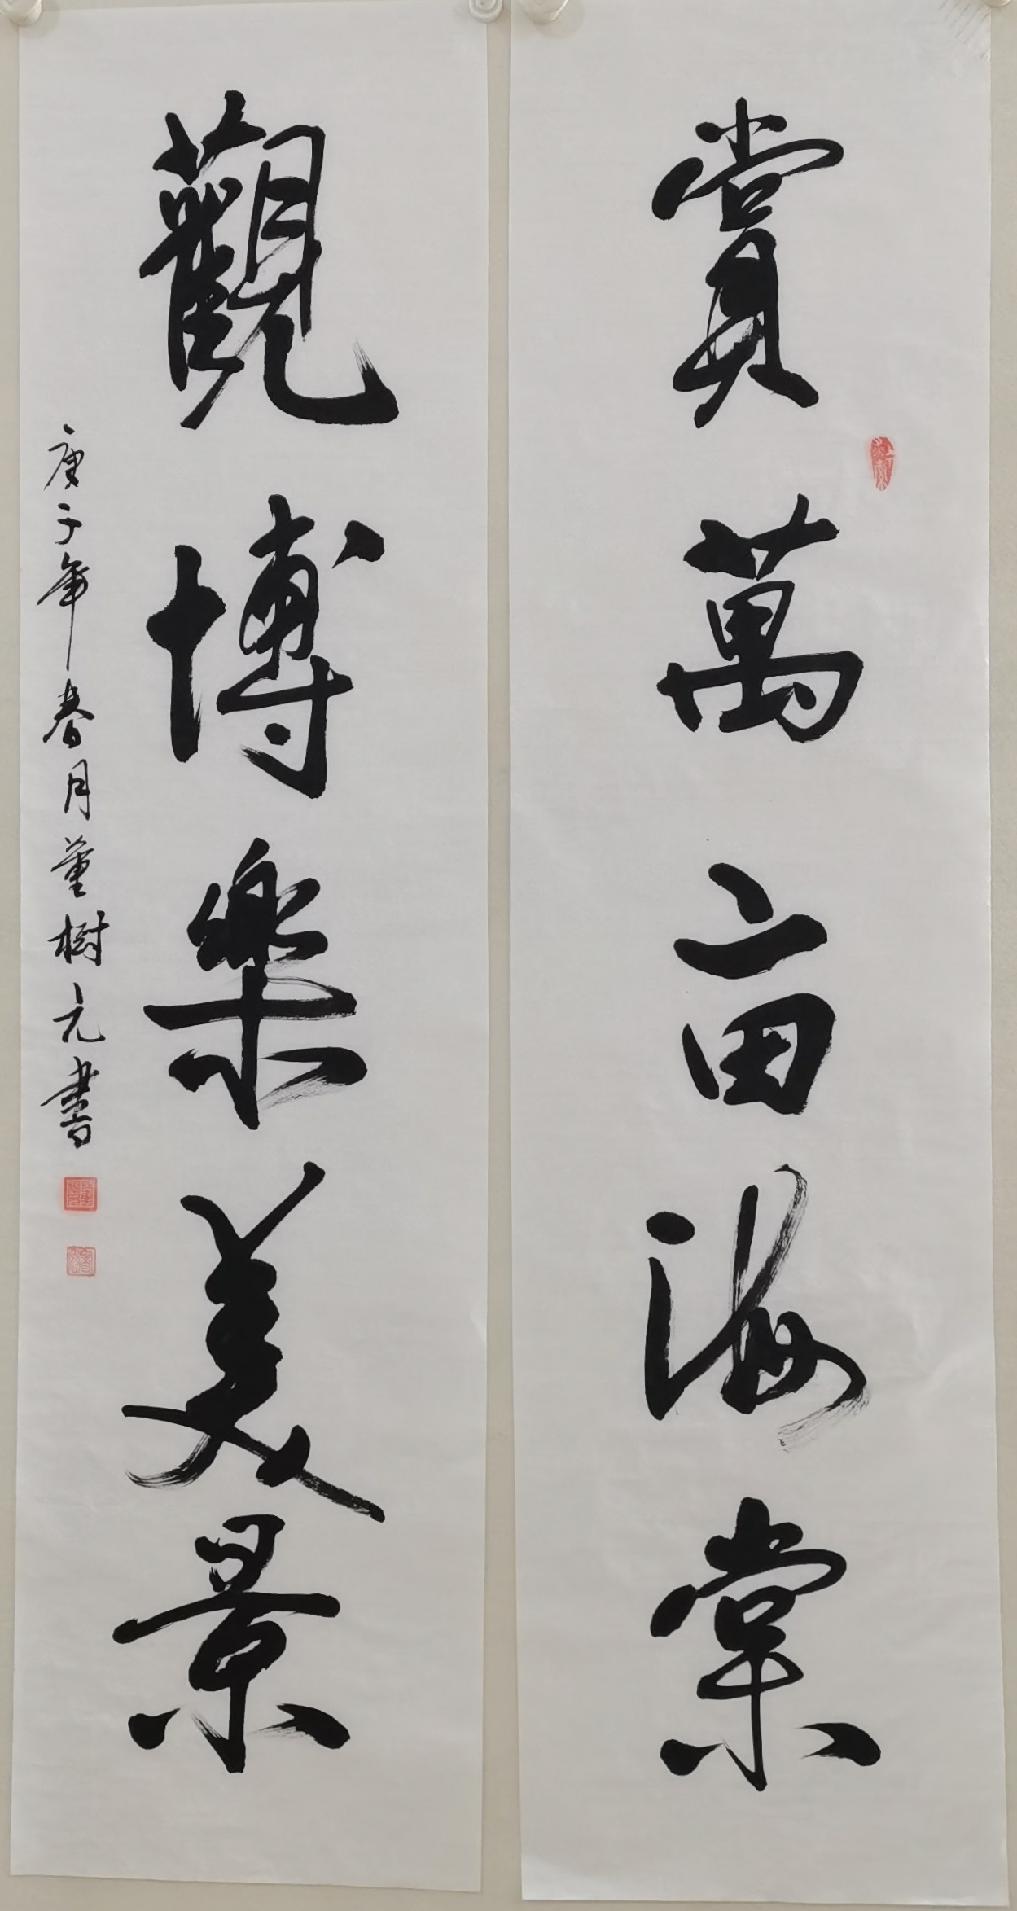 賞萬亩海棠
觀博樂美景
庚子年春月董樹元書